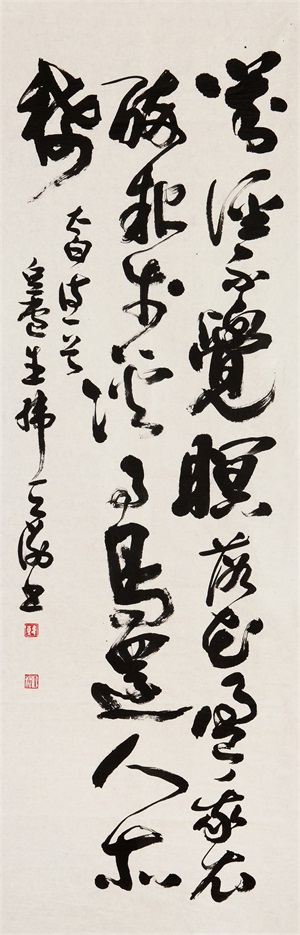 對酒不覺暝落花盈我衣
醉起步溪月鳥還人亦
稀
太白詩一首
生 書